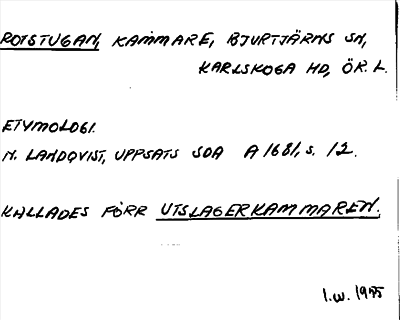 ROTSTUGAN, KAMMARE, BJURTJÄRNS SN,
KARLSKOGA HD, ÖR. L.
ETYMOLOGI.
N. LANDQVIST, UPPSATS SOA A 1681, S. 12.
KALLADES FÖRR UTSLAGERKAMMAREN.
I.W. 1955